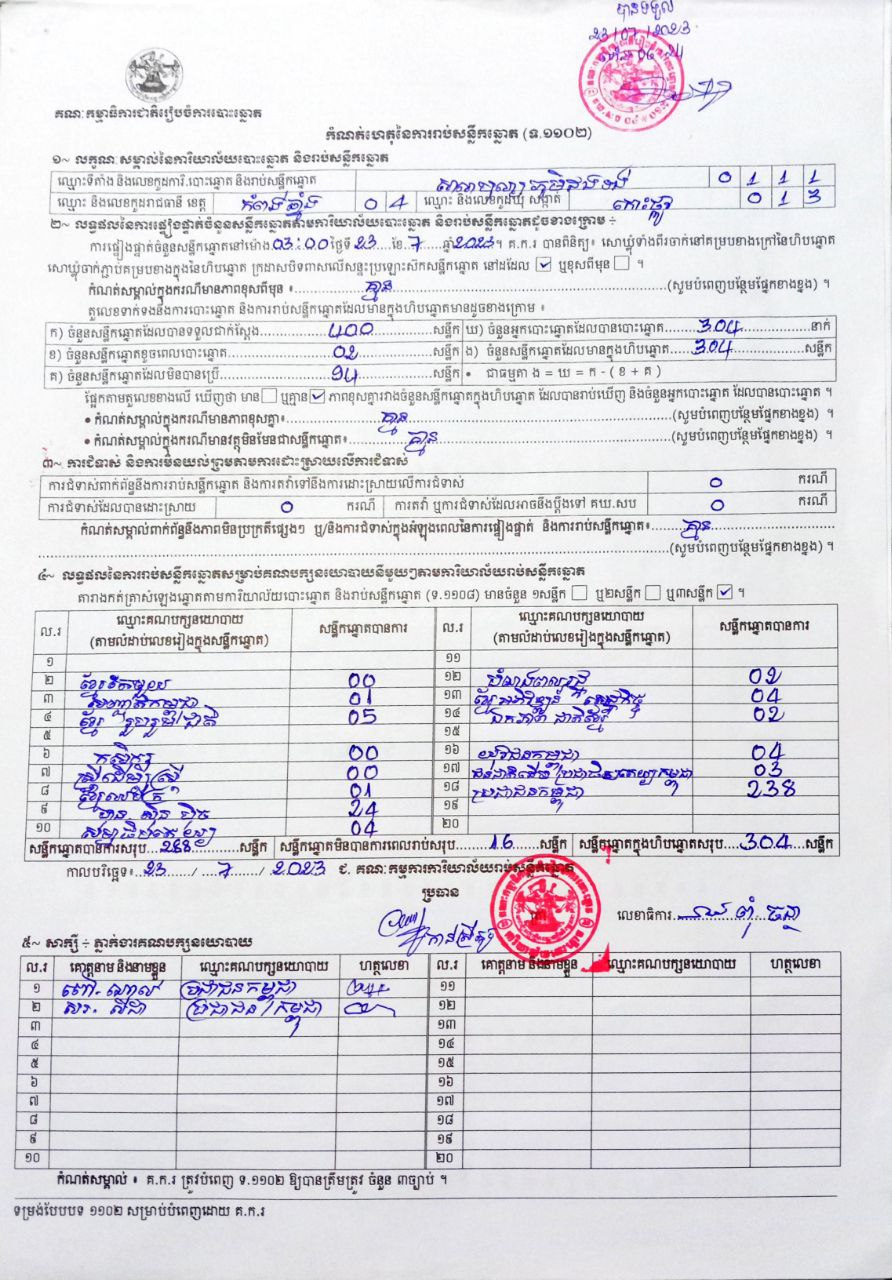 បានទទួល
23/07/2023
គណៈកម្មាធិការជាតិរៀបចំការបោះឆ្នោត
កំណត់ហេតុនៃការរាប់សន្លឹកឆ្នោត (ទ.១១០២)
១~ លក្ខណៈសម្គាល់នៃការិយាល័យបោះឆ្នោត និងរាប់សន្លឹកឆ្នោត
ឈ្មោះទីតាំង និងលេខកូដការិ.បោះឆ្នោត និងរាប់សន្លឹកឆ្នោត 0 1 1 1
ឈ្មោះ និងលេខកូដរាជធានី ខេត្ត កំពង់ឆ្នាំង 0 4 ឈ្មោះ និងលេខកូដឃុំ សង្កាត់ 0 1 3
២~ លទ្ធផលនៃការផ្ទៀងផ្ទាត់ចំនួនសន្លឹកឆ្នោតតាមការិយាល័យបោះឆ្នោត និងរាប់សន្លឹកឆ្នោតដូចខាងក្រោម ÷
ការផ្ទៀងផ្ទាត់ចំនួនសន្លឹកឆ្នោតនៅម៉ោង 03:00 ថ្ងៃទី 23 ខែ 7 ឆ្នាំ 2023។ គ.ក.រ បានពិនិត្យ៖ សោឃ្លុំទាំងពីរចាក់នៅគម្របខាងក្រៅនៃហិបឆ្នោត
សោឃ្លុំចាក់ភ្ជាប់គម្របខាងក្នុងនៃហិបឆ្នោត ក្រដាសបិទពាសលើសន្ទះប្រឡោះស៊កសន្លឹកឆ្នោត នៅដដែល ☑ ឬខុសពីមុន ☐ ។
កំណត់សម្គាល់ក្នុងករណីមានភាពខុសពីមុន ៖ គ្មាន (សូមបំពេញបន្ថែមផ្នែកខាងខ្នង) ។
តួលេខទាក់ទងនឹងការបោះឆ្នោត និងការរាប់សន្លឹកឆ្នោតដែលមានក្នុងហិបឆ្នោតមានដូចខាងក្រោម ៖
ក) ចំនួនសន្លឹកឆ្នោតដែលបានទទួលជាក់ស្តែង 400 សន្លឹក ឃ) ចំនួនអ្នកបោះឆ្នោតដែលបានបោះឆ្នោត 304 នាក់
ខ) ចំនួនសន្លឹកឆ្នោតខូចពេលបោះឆ្នោត 02 សន្លឹក ង) ចំនួនសន្លឹកឆ្នោតដែលមានក្នុងហិបឆ្នោត 304 សន្លឹក
គ) ចំនួនសន្លឹកឆ្នោតដែលមិនបានប្រើ 94 សន្លឹក • ជាធម្មតា ង = ឃ = ក - ( ខ + គ )
ផ្អែកតាមតួលេខខាងលើ ឃើញថា មាន ☐ ឬគ្មាន ☑ ភាពខុសគ្នារវាងចំនួនសន្លឹកឆ្នោតក្នុងហិបឆ្នោត ដែលបានរាប់ឃើញ និងចំនួនអ្នកបោះឆ្នោត ដែលបានបោះឆ្នោត ។
• កំណត់សម្គាល់ក្នុងករណីមានភាពខុសគ្នា៖ គ្មាន (សូមបំពេញបន្ថែមផ្នែកខាងខ្នង) ។
• កំណត់សម្គាល់ក្នុងករណីមានវត្ថុមិនមែនជាសន្លឹកឆ្នោត៖ គ្មាន (សូមបំពេញបន្ថែមផ្នែកខាងខ្នង) ។
៣~ ការជំទាស់ និងការមិនយល់ព្រមតាមការដោះស្រាយលើការជំទាស់
ការជំទាស់ពាក់ព័ន្ធនឹងការរាប់សន្លឹកឆ្នោត និងការតវ៉ាទៅនឹងការដោះស្រាយលើការជំទាស់ 0 ករណី
ការជំទាស់ដែលបានដោះស្រាយ 0 ករណី ការតវ៉ា ឬការជំទាស់ដែលអាចនឹងប្តឹងទៅ គឃ.សប 0 ករណី
កំណត់សម្គាល់ពាក់ព័ន្ធនឹងភាពមិនប្រក្រតីផ្សេងៗ ឬ/និងការជំទាស់ក្នុងអំឡុងពេលនៃការផ្ទៀងផ្ទាត់ និងការរាប់សន្លឹកឆ្នោត៖ គ្មាន
(សូមបំពេញបន្ថែមផ្នែកខាងខ្នង) ។
៤~ លទ្ធផលនៃការរាប់សន្លឹកឆ្នោតសម្រាប់គណបក្សនយោបាយនីមួយៗតាមការិយាល័យរាប់សន្លឹកឆ្នោត
តារាងកត់ត្រាសំឡេងឆ្នោតតាមការិយាល័យបោះឆ្នោត និងរាប់សន្លឹកឆ្នោត (ទ.១១០៨) មានចំនួន ១សន្លឹក ☐ ឬ២សន្លឹក ☐ ឬ៣សន្លឹក ☑ ។
ល.រ ឈ្មោះគណបក្សនយោបាយ សន្លឹកឆ្នោតបានការ ល.រ ឈ្មោះគណបក្សនយោបាយ សន្លឹកឆ្នោតបានការ
(តាមលំដាប់លេខរៀងក្នុងសន្លឹកឆ្នោត) (តាមលំដាប់លេខរៀងក្នុងសន្លឹកឆ្នោត)
១ ១១
២ 00 ១២ 02
៣ 01 ១៣ 04
៤ ខ្មែររួបរួមជាតិ 05 ១៤ ឯកភាពជាតិខ្មែរ 02
៥ ១៥
៦ កសិករ 00 ១៦ យុវជនកម្ពុជា 04
៧ ស្រីដើម្បីស្រី 00 ១៧ 03
៨ 01 ១៨ ប្រជាជនកម្ពុជា 238
៩ ហ៊្វុនស៊ិនប៉ិច 24 ១៩
១០ 04 ២០
សន្លឹកឆ្នោតបានការសរុប 288 សន្លឹក សន្លឹកឆ្នោតមិនបានការពេលរាប់សរុប 16 សន្លឹក សន្លឹកឆ្នោតក្នុងហិបឆ្នោតសរុប 304 សន្លឹក
កាលបរិច្ឆេទ៖ 23 / 7 / 2023 ជ. គណៈកម្មការការិយាល័យរាប់សន្លឹកឆ្នោត
ប្រធាន
លេខាធិការ
៥~ សាក្សី ÷ ភ្នាក់ងារគណបក្សនយោបាយ
ល.រ គោត្តនាម និងនាមខ្លួន ឈ្មោះគណបក្សនយោបាយ ហត្ថលេខា ល.រ គោត្តនាម និងនាមខ្លួន ឈ្មោះគណបក្សនយោបាយ ហត្ថលេខា
១ ប្រជាជនកម្ពុជា ១១
២ ប្រជាជនកម្ពុជា ១២
៣ ១៣
៤ ១៤
៥ ១៥
៦ ១៦
៧ ១៧
៨ ១៨
៩ ១៩
១០ ២០
កំណត់សម្គាល់ ៖ គ.ក.រ ត្រូវបំពេញ ទ.១១០២ ឱ្យបានត្រឹមត្រូវ ចំនួន ៣ច្បាប់ ។
ទម្រង់បែបបទ ១១០២ សម្រាប់បំពេញដោយ គ.ក.រ